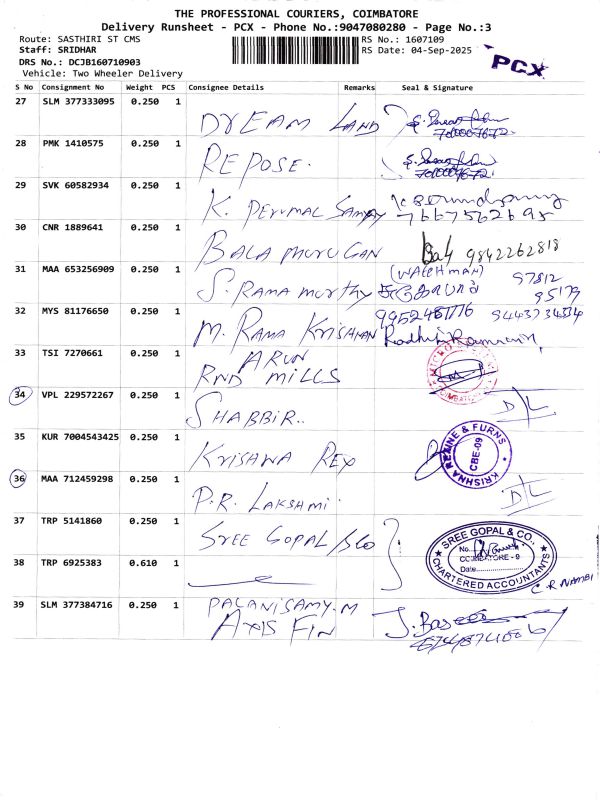 THE PROFESSIONAL COURIERS, COIMBATORE
Delivery Runsheet - PCX - Phone No.:9047080280 - Page No.:3
Route: SASTHIRI ST CMS RS No.: 1607109
Staff: SRIDHAR RS Date: 04-Sep-2025
DRS No.: DCJB160710903 PCX
Vehicle: Two Wheeler Delivery
S No Consignment No Weight PCS Consignee Details Remarks Seal & Signature
27 SLM 377333095 0.250 1 DREAM LAND
28 PMK 1410575 0.250 1 REPOSE.
29 SVK 60582934 0.250 1 K. PERUMAL SAMYAY 7667562698
30 CNR 1889641 0.250 1 BALA MURUGAN Bab 9842262818
31 MAA 653256909 0.250 1 S. RAMA MURTHY (WATCHMAN) 97812
95179
32 MYS 81176650 0.250 1 M. RAMA KRISHNAN 9443734334
33 TSI 7270661 0.250 1 ARUN
RND MILLS
34 VPL 229572267 0.250 1 SHABBIR.. D/L
35 KUR 7004543425 0.250 1 KRISHNA REX KRISHNA & FURNS CBE-09
36 MAA 712459298 0.250 1 P.R. LAKSHMI D/L
37 TRP 5141860 0.250 1 SREE GOPAL /SCO SREE GOPAL & CO.,
No.
COIMBATORE - 9
Date
CHARTERED ACCOUNTANTS
38 TRP 6925383 0.610 1 C R NAMBI
39 SLM 377384716 0.250 1 PALANISAMY.M
AXIS FIN